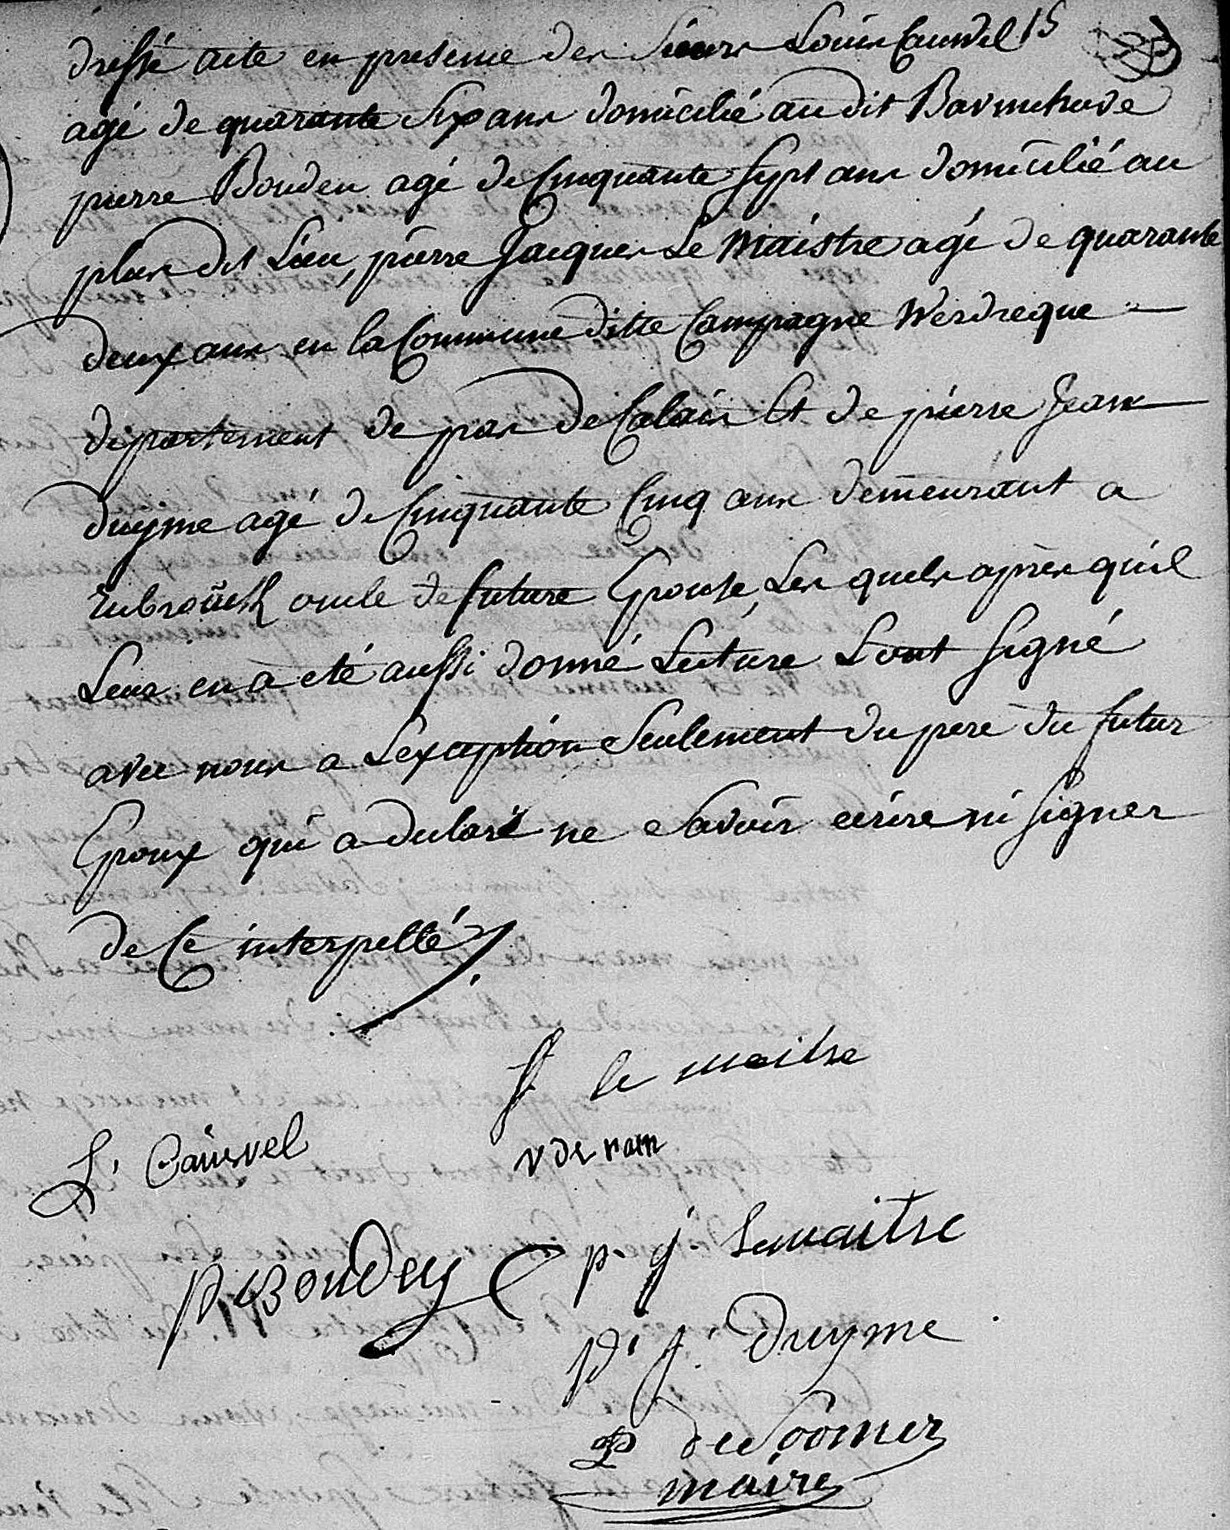 dressé acte en presence des Sieurs Louis Cauwel 15
agé de quarante Six ans domicilié au dit
pierre Bouden agé de Cinquante Sept ans domicilié au
plus dit Lieu, pierre Jacques Le Maistre agé de quarante
deux ans en la Commune ditte Campagne Werdreque
département de pas de Calais Et de pierre Jean
Duyme agé de Cinquante Cinq ans demeurant a
rubrouck oncle de future Epouse, Les quels après quil
Leur en a eté aussi donné Lecture L'ont signé
avec nous a L'exception Seulement du pere du futur
Epoux qui a declaré ne Savoir ecrire ni signer
de Ce interpellé
le maitre
L' Caüwel
P Bouden
p. j. Lemaitre
P' j' Duyme
maire